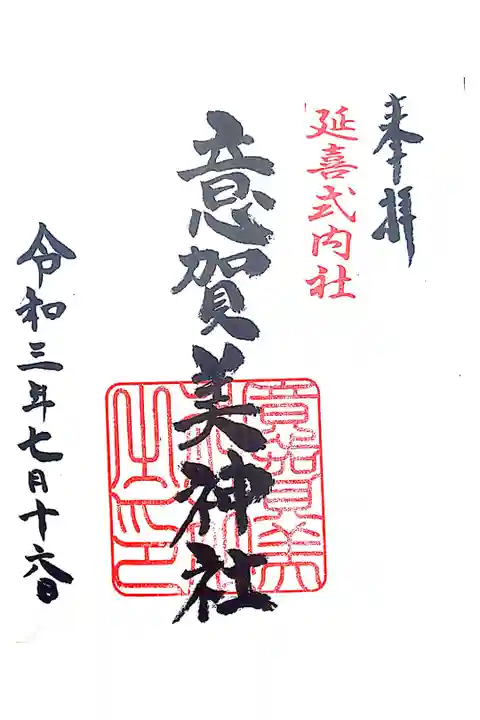 奉拝
延喜式内社
意賀美神社
令和三年七月十六日